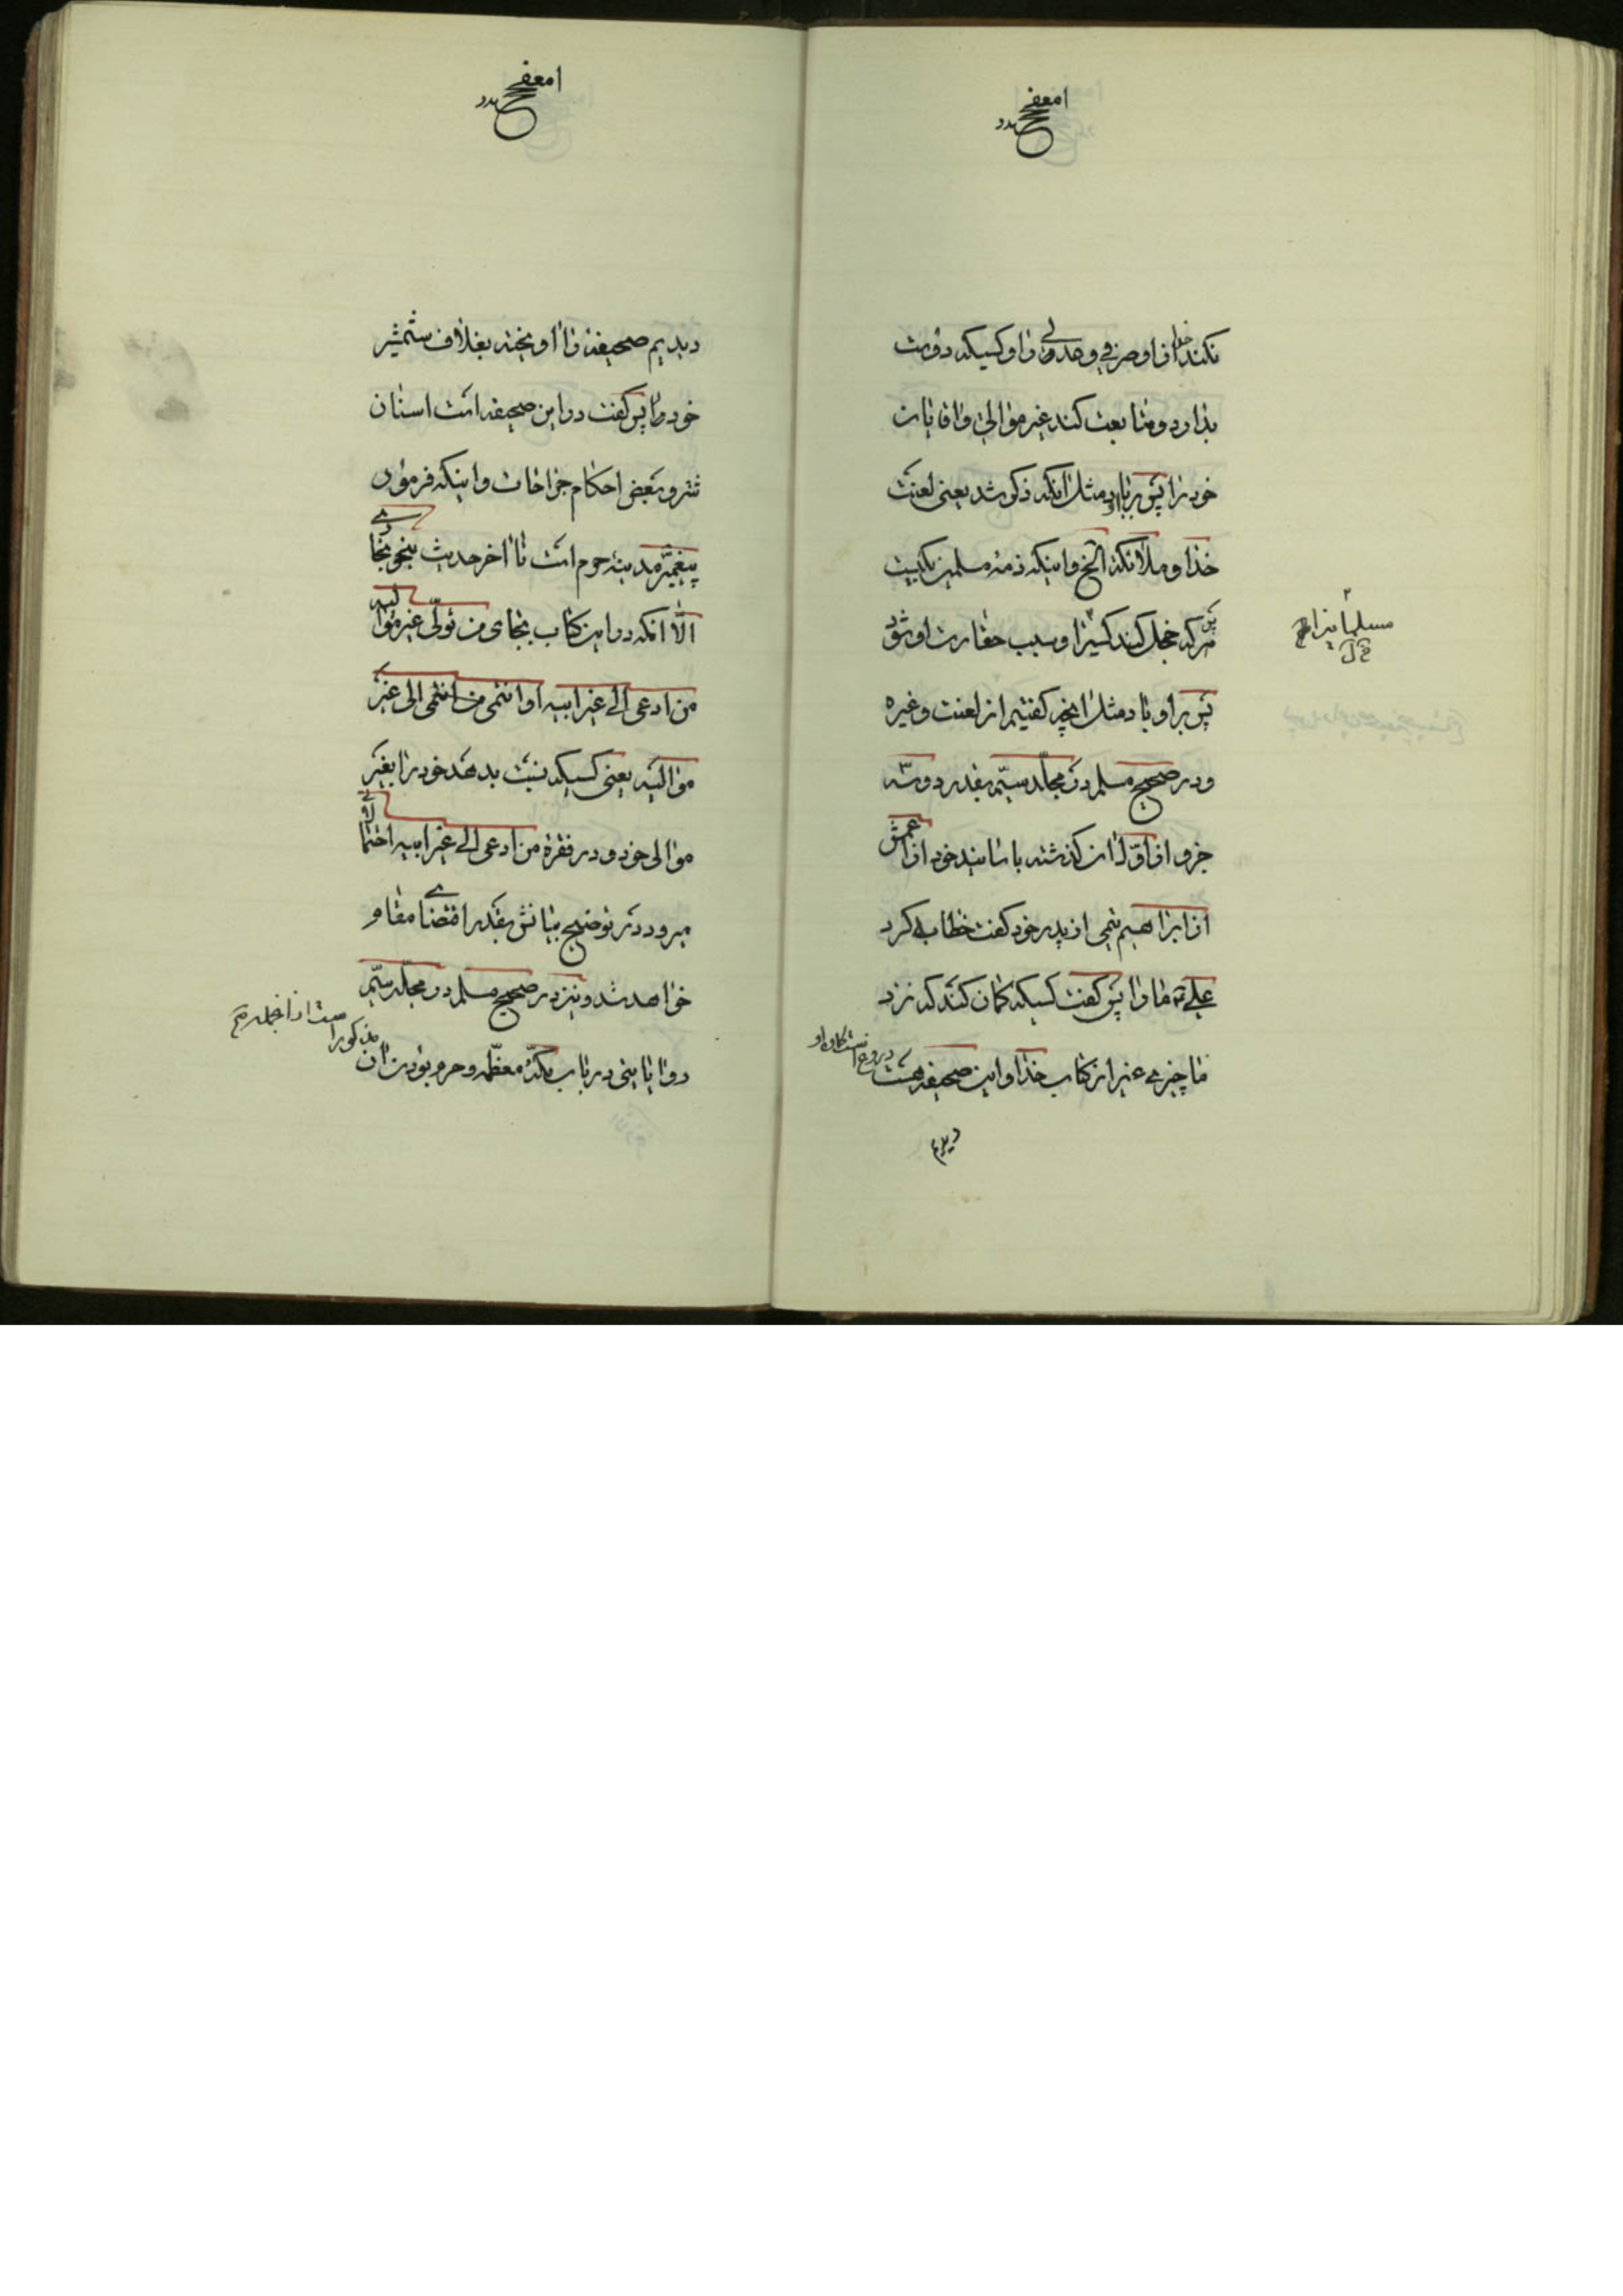 نکند خدا از او صرفی و عدلی را و کسیکه دوست
بدارد و متابعت کند غیر موالی و اقایان
خود را پس بر باد مثل انکه ذکر شد یعنی لعنت
خدا و ملائکه الخ و اینکه ذمه مسلمین یکیست
پس هر که خجل کند کسیرا و سبب حقارت او شود
مسلمانیرا
پس بر او باد مثل انچه کفتیم از لعنت و غیره
و در صحیح مسلم در مجلد سیّم بقدر دو سه
جزو از اوّل ان کذشته باسانید خود از اعمش
از ابراهیم تیمی از پدر خود کفت خطابه کرد
علی ما را پس کفت کسیکه کمان کند که نزد
ما چیزی غیر از کتاب خدا و این صحیفه هست دروغ است کمان او
دیدیم
دیدیم صحیفه را اویخته بغلاف شمشیر
خود را پس کفت در این صحیفه است اسنان
شتر و بعض احکام جراحات و اینکه فرموده
پیغمبر مدینه حرم است تا اخر حدیث بنحو بخاری
الّا انکه در این کتاب بجای من تولّی غیر موالیه
من ادعی الی غیر ابیه او انتمی الی غیر
موالیه یعنی کسیکه نسبت بدهد خود را بغیر
موالی خود و در فقره من ادعی الی غیر ابیه احتمالی
میرود که توضیح بیانش بقدر اقتضای مقام
خواهد شد و نیز در صحیح مسلم در مجلد سیّم
روایاتی در باب مکّه معظّمه و حرم بودن ان
مذکور است از انجمله